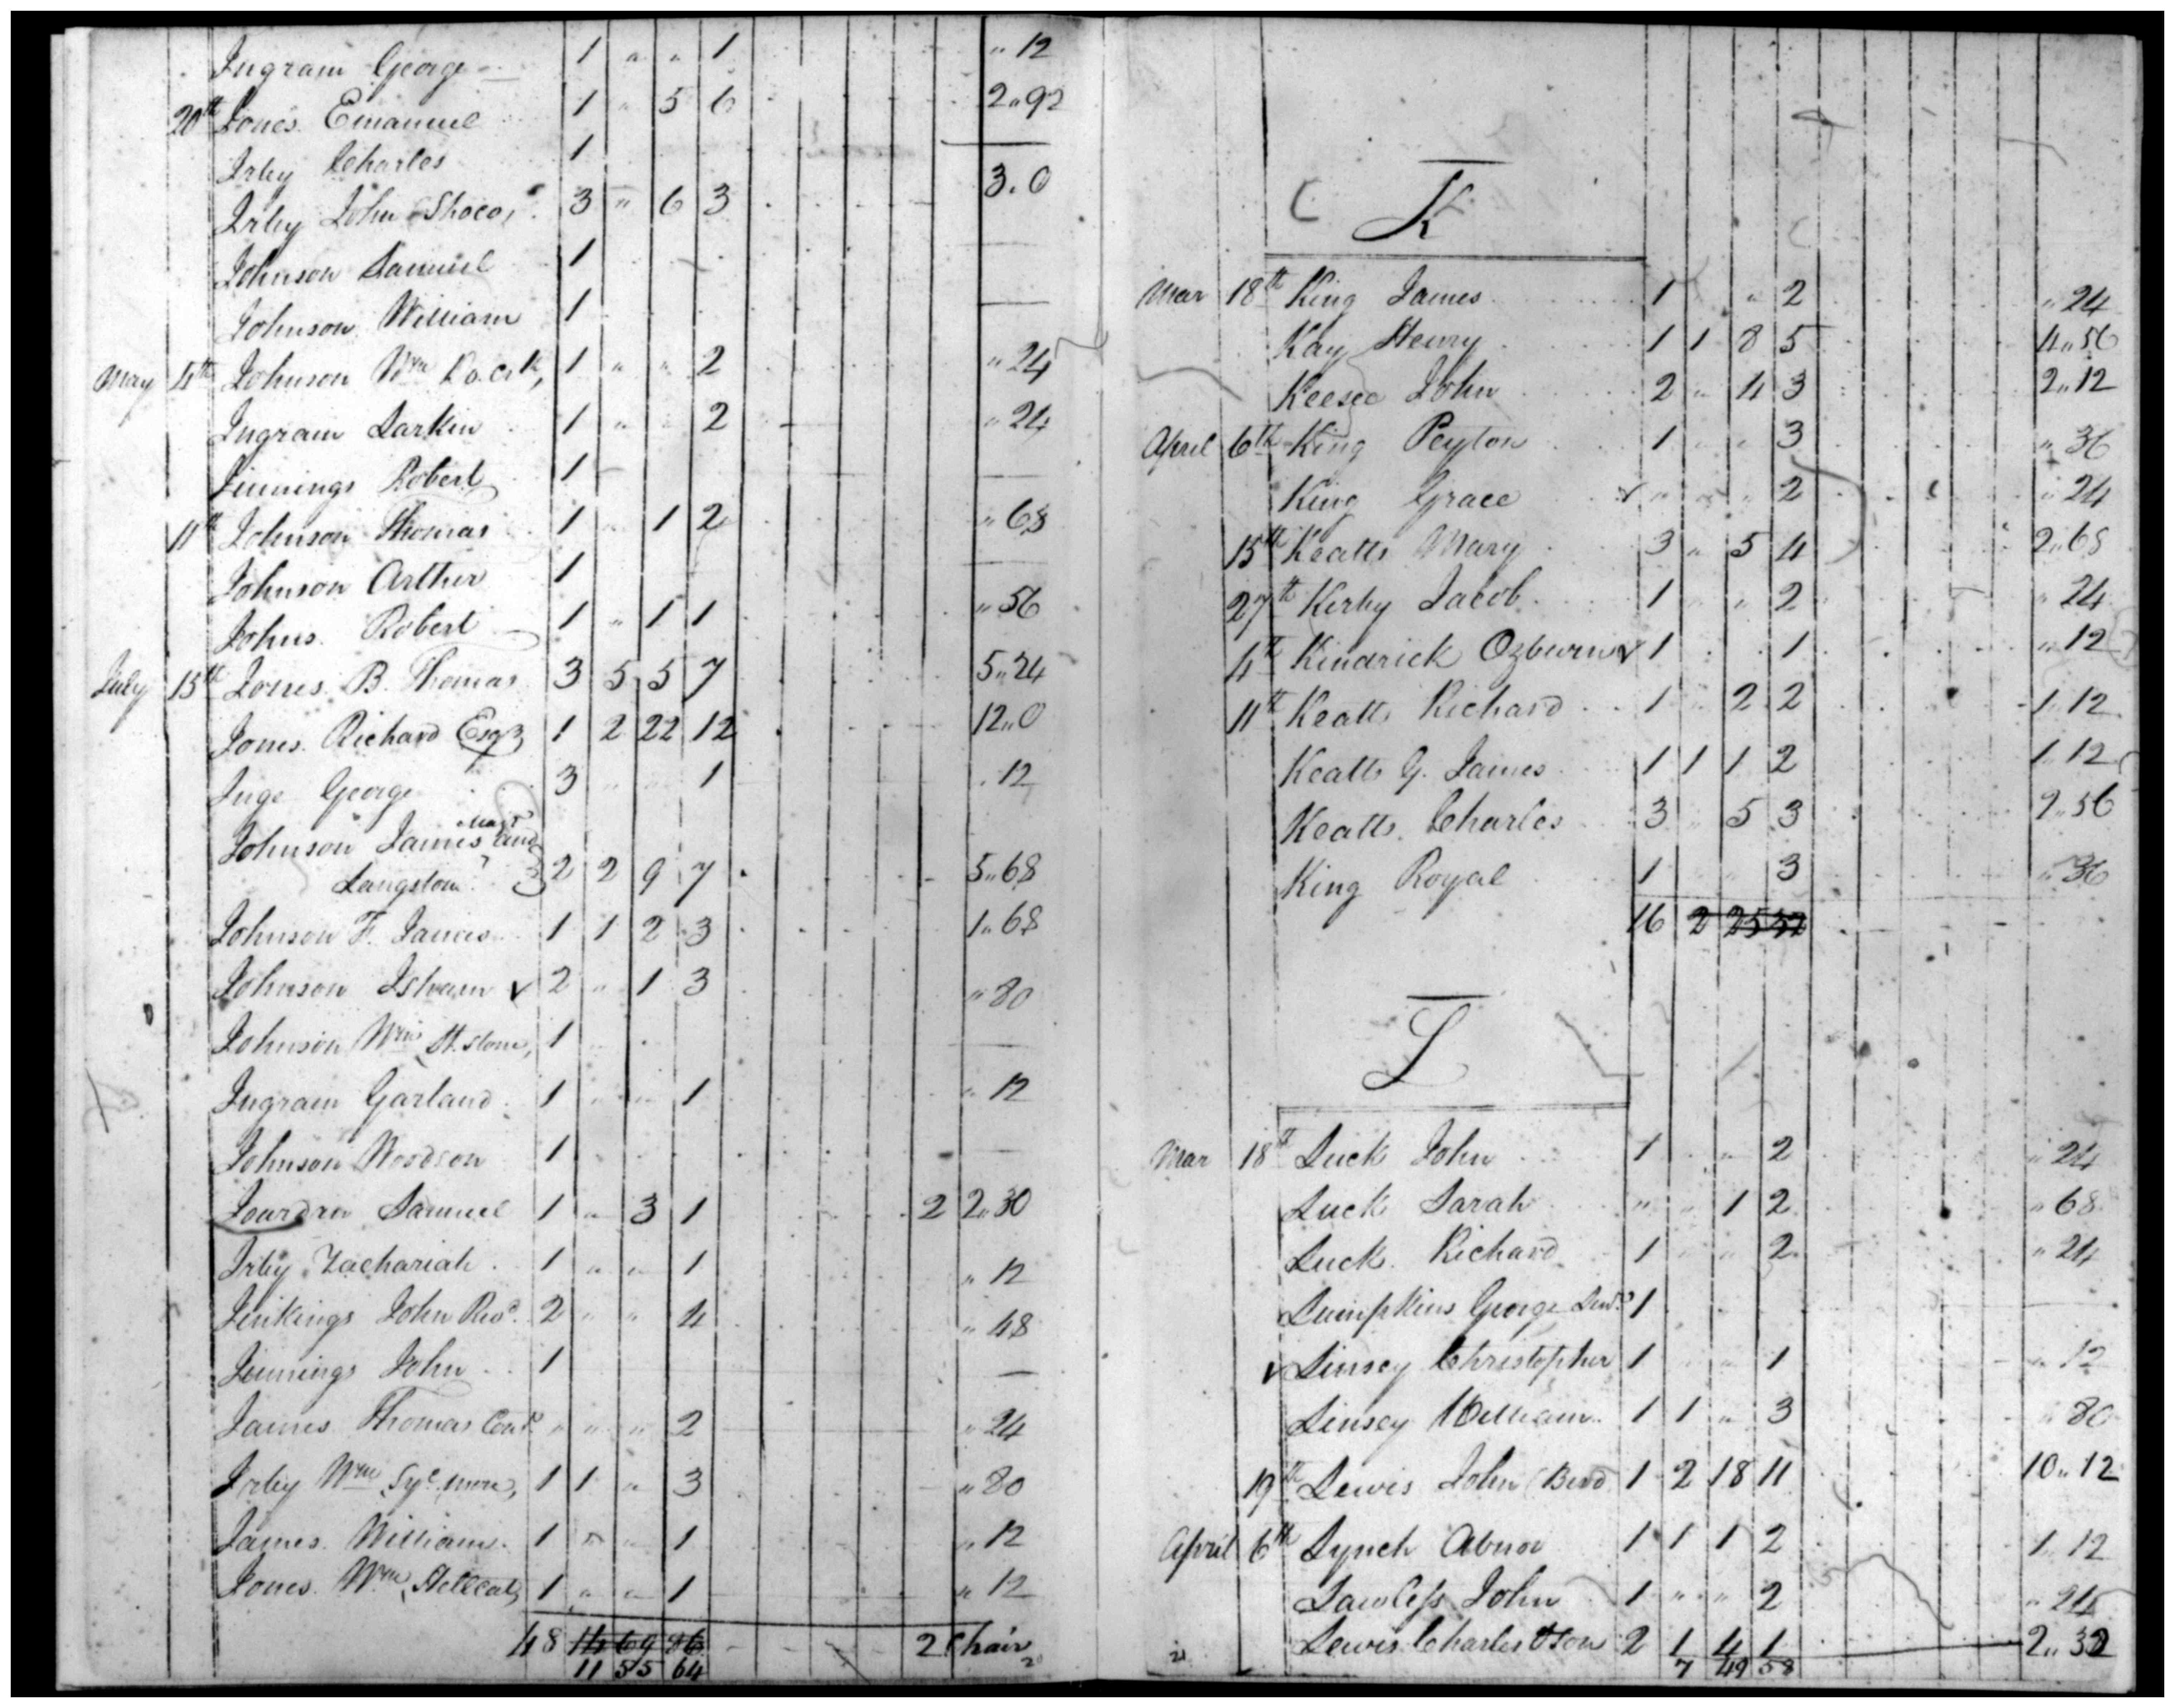 Ingram George 1 " " 1 " 12
20th Jones Emanuel 1 " 5 6 2 " 92
Irby Charles 1
Irby John Shoco, 3 " 6 3 3 . 0
Johnson Samuel 1
Johnson William 1
May 4th Johnson Wm Ro. Crk, 1 " " 2 " 24
Ingram Larkin 1 " " 2 " 24
Jinnings Robert 1
11th Johnson Thomas 1 " 1 2 " 68
Johnson Arther 1
Johns Robert 1 " 1 1 " 56
July 15th Jones B. Thomas 3 5 5 7 5 " 24
Jones Richard Esqr 1 2 22 12 12 " 0
Inge George 3 " " 1 " 12
Johnson James and
Langston 2 2 9 7 5 " 68
Johnson F. James 1 1 2 3 1 " 68
Johnson Isham v 2 " 1 3 " 80
Johnson Wm St. stone, 1
Ingram Garland 1 " " 1 " 12
Johnson Woodson 1
Jourdan Samuel 1 " 3 1 2 2 " 30
Irby Zachariah 1 " " 1 " 12
Jinkings John Revd. 2 " " 4 " 48
Jinnings John 1
James Thomas Cont. " " " 2 " 24
Irby Wm Syc more, 1 1 " 3 " 80
James William 1 " " 1 " 12
Jones Wm, Hellcat, 1 " " 1 " 12
48 14 69 86 2 Chair
11 55 64
K
Mar 18th King James 1 " 2 " 24
Kay Henry 1 1 8 5 4 " 56
Keesee John 2 " 4 3 2 " 12
April 6th King Peyton 1 " " 3 " 36
King Grace v " " " 2 " 24
15th Keatts Mary 3 " 5 4 2 " 68
27th Kerby Jacob 1 " " 2 " 24
4th Kindrick Ozburn v 1 1 " 12
11th Keatts Richard 1 " 2 2 1 " 12
Keatts G. James 1 1 1 2 1 " 12
Keatts Charles 3 " 5 3 2 " 56
King Royal 1 3 " 36
16 2 25 32
L
Mar 18th Luck John 1 " 2 " 24
Luck Sarah " " 1 2 " 68
Luck Richard 1 " " 2 " 24
Lumpkins George 1
v Linsey Christopher 1 " " 1 " 12
Linsey William 1 1 " 3 " 80
19th Lewis John (Bird 1 2 18 11 10 " 12
April 6th Lynch Abner 1 1 1 2 1 " 12
Lawless John 1 " " 2 " 24
21 Lewis Charles & son 2 1 4 1 2 " 32
7 49 58